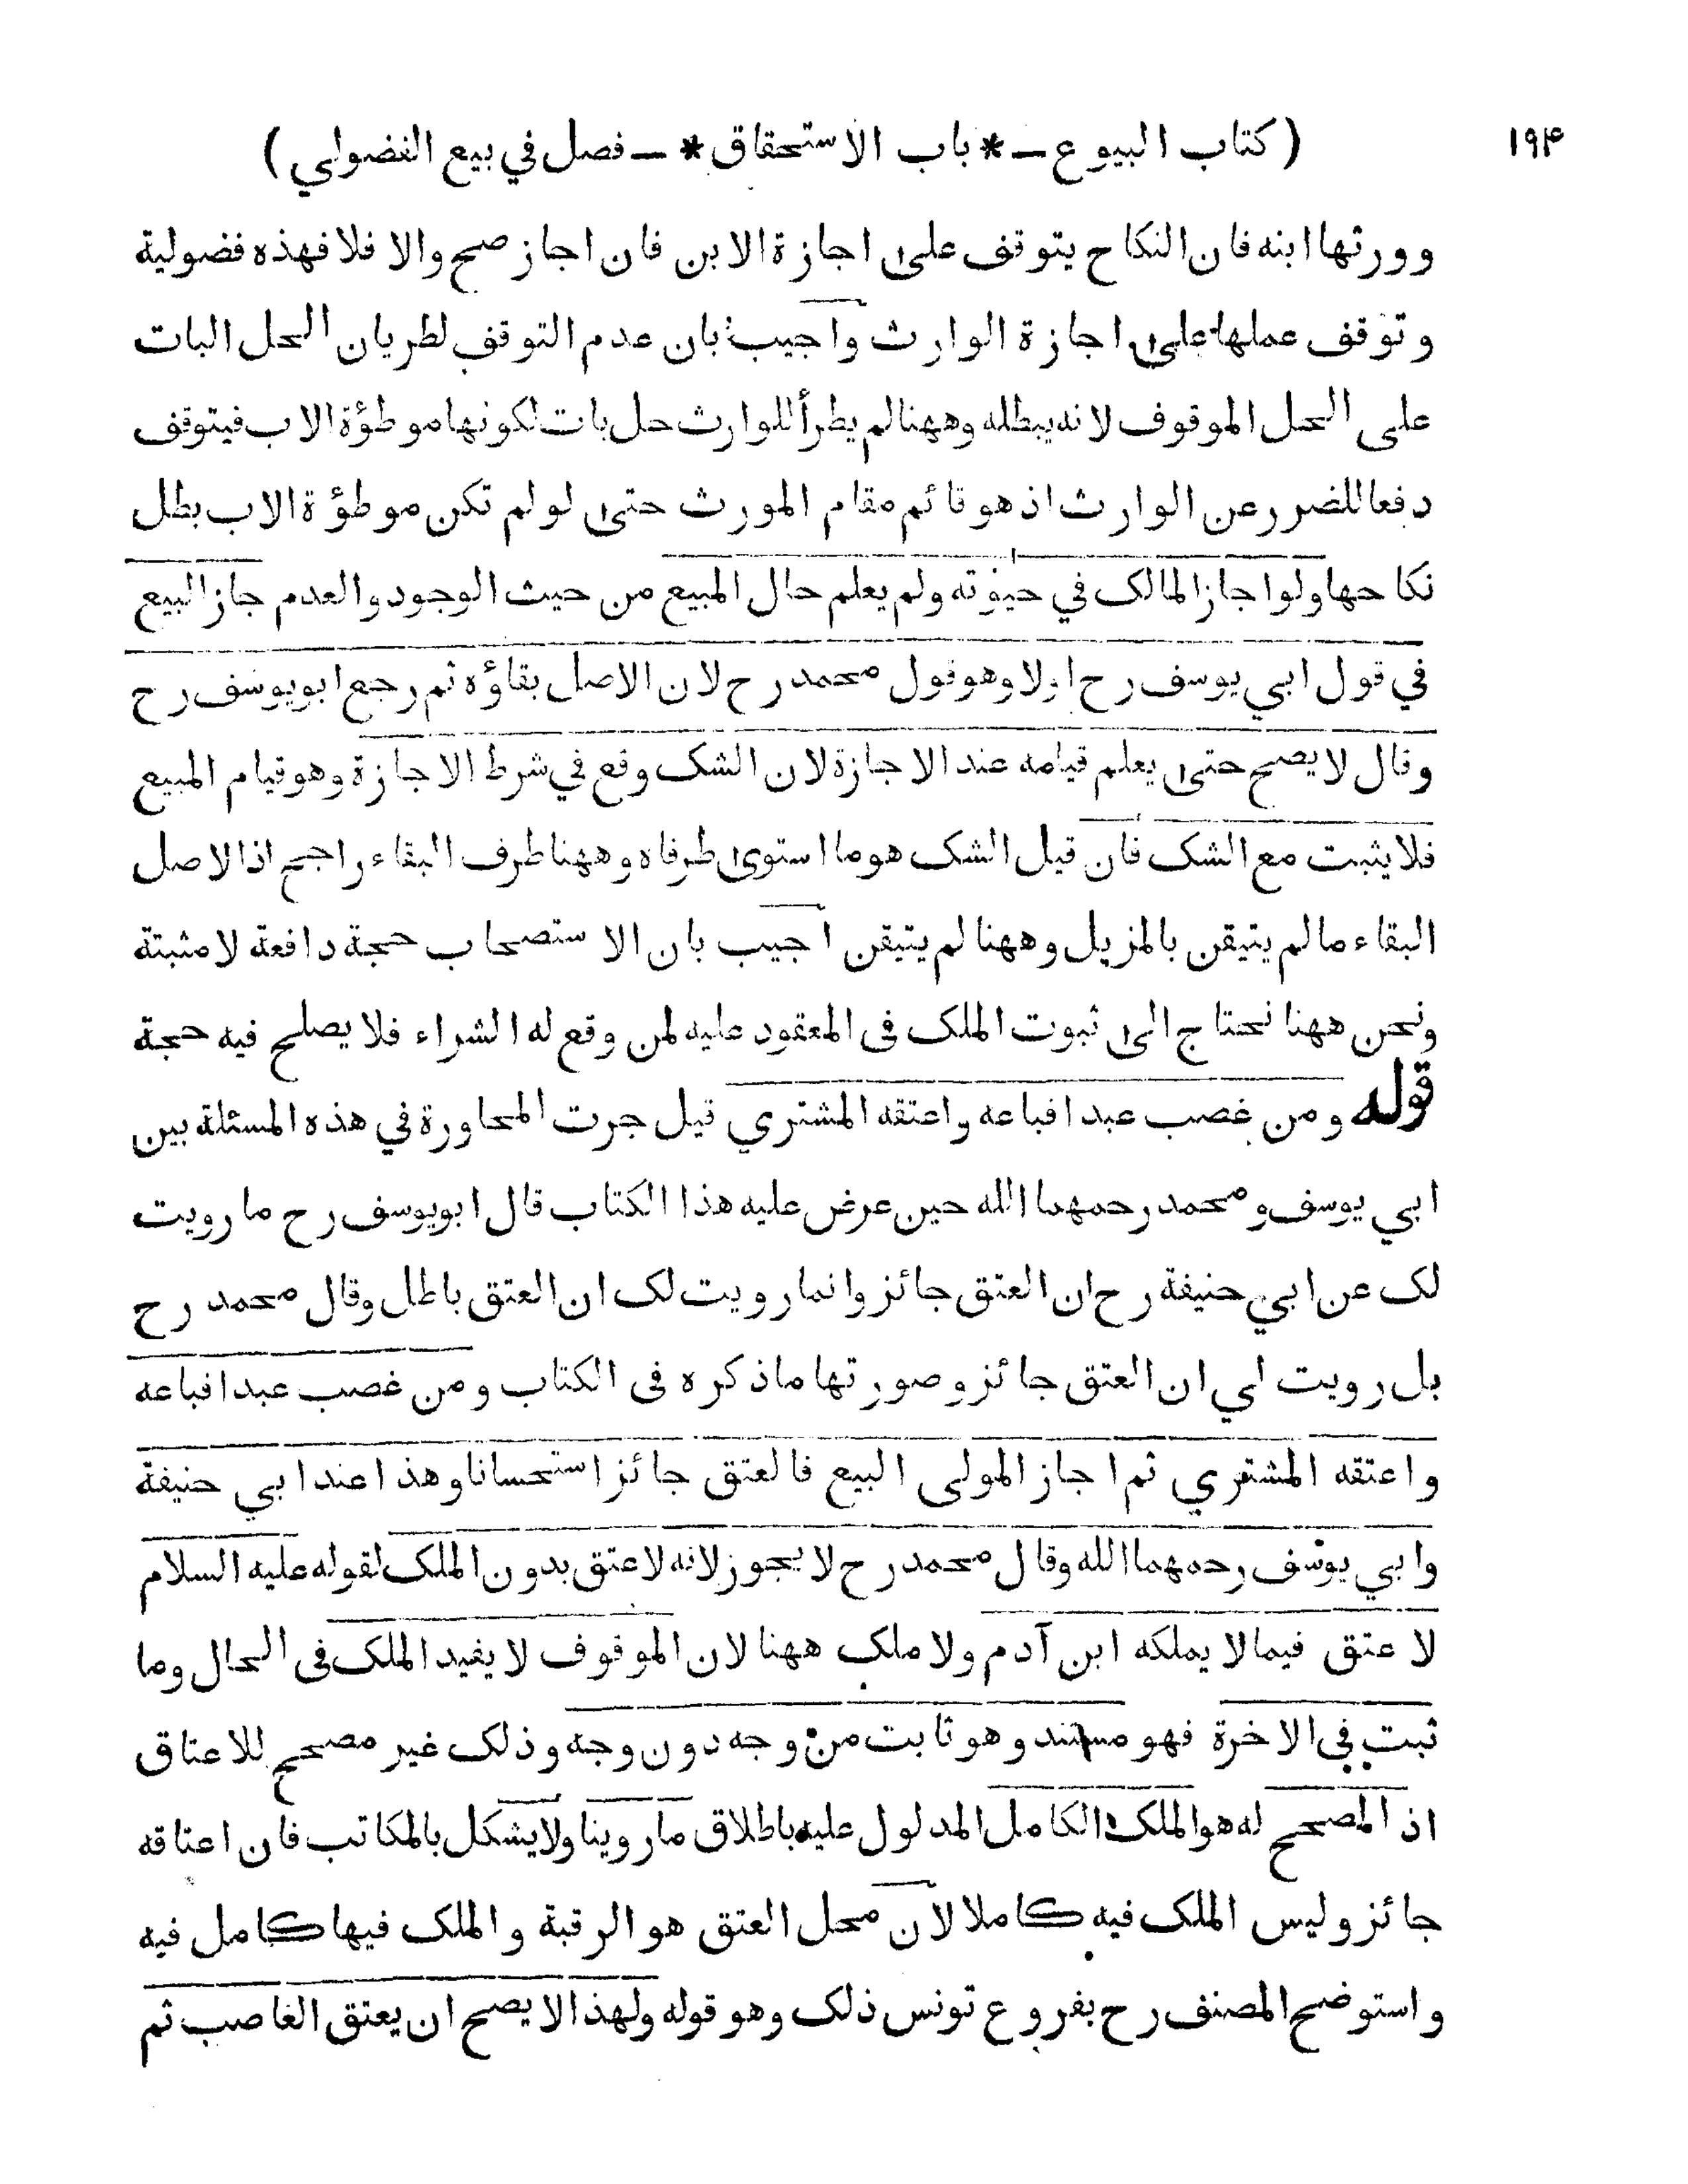 ١٩۴ ( كتاب البيوع ـ * باب الاستحقاق * ـ فصل في بيع الفضولي )
وورثها ابنه فان النكاح يتوقف على اجازة الابن فان اجاز صح والا فلا فهذه فضولية
وتوقف عملها على اجازة الوارث واجيب بان عدم التوقف لطريان الحل البات
على الحل الموقوف لانه يبطله وههنا لم يطرأ للوارث حل بات لكونها موطؤة الاب فيتوقف
دفعا للضرر عن الوارث اذ هو قائم مقام المورث حتى لو لم تكن موطؤة الاب بطل
نكاحها ولو اجاز المالك في حيوته ولم يعلم حال المبيع من حيث الوجود والعدم جاز البيع
في قول ابي يوسف رح اولا وهو قول محمد رح لان الاصل بقاؤه ثم رجع ابو يوسف رح
وقال لا يصح حتى يعلم قيامه عند الاجازة لان الشك وقع في شرط الاجازة وهو قيام المبيع
فلا يثبت مع الشك فان قيل الشك هو ما استوى طرفاه وههنا طرف البقاء راجح اذ الاصل
البقاء ما لم يتيقن بالمزيل وههنا لم يتيقن اجيب بان الاستصحاب حجة دافعة لا مثبتة
ونحن ههنا نحتاج الى ثبوت الملك فى المعقود عليه لمن وقع له الشراء فلا يصلح فيه حجة
قوله ومن غصب عبدا فباعه واعتقه المشتري قيل جرت المحاورة في هذه المسئلة بين
ابي يوسف ومحمد رحمهما الله حين عرض عليه هذا الكتاب قال ابو يوسف رح ما رويت
لك عن ابي حنيفة رح ان العتق جائز وانما رويت لك ان العتق باطل وقال محمد رح
بل رويت لي ان العتق جائز وصورتها ما ذكره فى الكتاب ومن غصب عبدا فباعه
واعتقه المشتري ثم اجاز المولى البيع فالعتق جائز استحسانا وهذا عند ابي حنيفة
وابي يوسف رحمهما الله وقال محمد رح لا يجوز لانه لا عتق بدون الملك لقوله عليه السلام
لا عتق فيما لا يملكه ابن آدم ولا ملك ههنا لان الموقوف لا يفيد الملك فى الحال وما
ثبت في الاخرة فهو مستند وهو ثابت من وجه دون وجه وذلك غير مصحح للاعتاق
اذ المصحح له هو الملك الكامل المدلول عليه باطلاق ما روينا ولا يشكل بالمكاتب فان اعتاقه
جائز وليس الملك فيه كاملا لان محل العتق هو الرقبة والملك فيها كامل فيه
واستوضح المصنف رح بفروع تونس ذلك وهو قوله ولهذا لا يصح ان يعتق الغاصب ثم